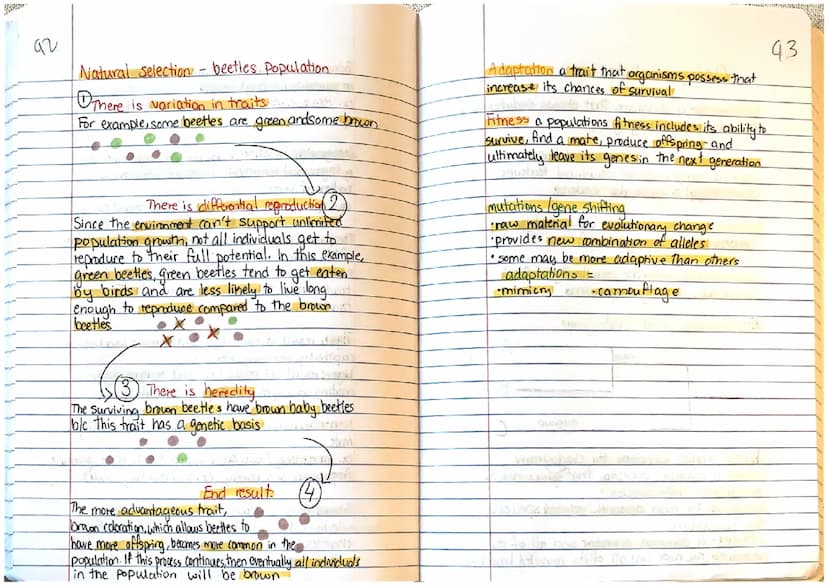 92
Natural Selection - beetles Population
1 There is variation in traits
For example, some beetles are green and some brown
There is differential reproduction 2
Since the environment can't support unlimited
population growth, not all individuals get to
reproduce to their full potential. In this example,
green beetles, green beetles tend to get eaten
by birds and are less likely to live long
enough to reproduce compared to the brown
beetles
3 There is heredity
The surviving brown beetles have brown baby beetles
b/c this trait has a genetic basis
End result: 4
The more advantageous trait,
brown coloration, which allows beetles to
have more offspring, becomes more common in the
population. If this process continues, then eventually all individuals
in the population will be brown
93
Adaptation a trait that organisms possess that
increase its chances of survival
Fitness a populations fitness includes its ability to
survive, find a mate, produce offspring and
ultimately leave its genes in the next generation
mutations/gene shifting
•raw material for evolutionary change
•provides new combination of alleles
•some may be more adaptive than others
adaptations =
•mimicry •camouflage